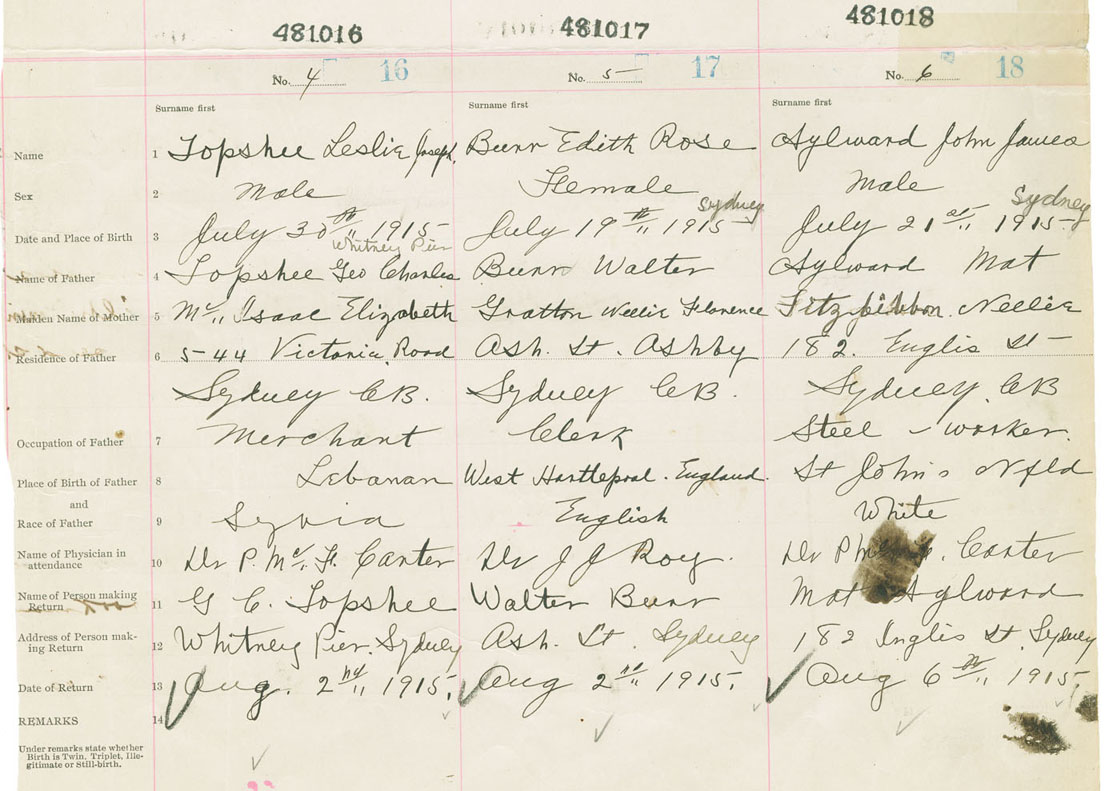 481016 481017 481018
No. 4 16 No. 5 17 No. 6 18
Surname first Surname first Surname first
Name 1 Topshee Leslie Joseph Burr Edith Rose Aylward John James
Sex 2 Male Female Male
Sydney Sydney
Date and Place of Birth 3 July 30th 1915 July 19th 1915 July 21st 1915
Whitney Pier
Name of Father 4 Topshee Geo Charles Burr Walter Aylward Mat
Maiden Name of Mother 5 Mc Isaac Elizabeth Gratton Nellie Florence Fitzgibbon. Nellie
Residence of Father 6 544 Victoria Road Ash. St. Ashby 182. Englis St
Sydney C.B. Sydney C.B. Sydney C.B
Occupation of Father 7 Merchant Clerk Steel - worker.
Place of Birth of Father 8 Lebanan West Hartlepool. England. St John's Nfld
and
Race of Father 9 Syria English White
Name of Physician in
attendance 10 Dr P. Mc. F. Carter Dr J J Roy. Dr Carter
Name of Person making
Return 11 G C. Topshee Walter Burr Mat Aylward
Address of Person mak-
ing Return 12 Whitney Pier. Sydney Ash. St. Sydney 182 Inglis St. Sydney
Date of Return 13 Aug. 2nd 1915. Aug 2nd 1915. Aug 6th 1915.
REMARKS 14
Under remarks state whether
Birth is Twin, Triplet, Ille-
gitimate or Still-birth.